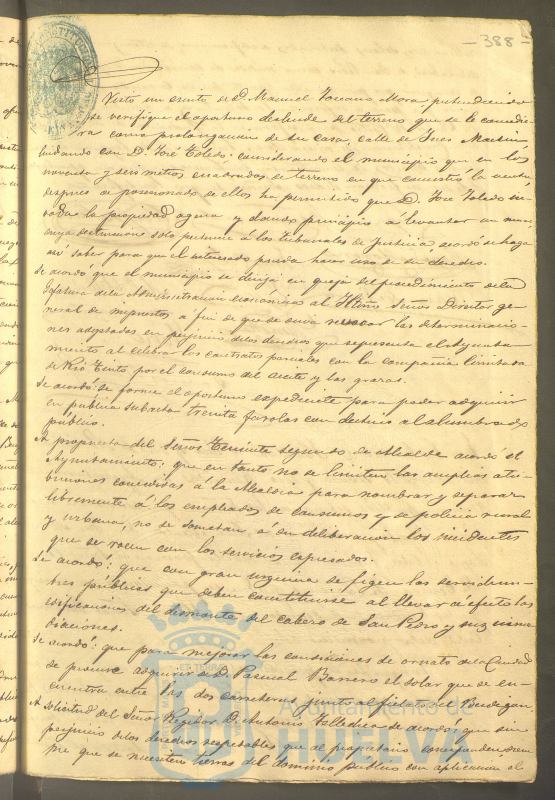 - 388 -
Visto un escrito de D. Manuel Toscano Mora pretendiendo
se verifique el oportuno deslinde del terreno que se le concedie
ra como prolongacion de su casa, calle de Ines Martin,
lindando con D. José Toledo: considerando el municipio que en los
noventa y seis metros cuadrados de terreno en que consistió la venta
despues de posesionado de ellos ha permitido que D. José Toledo in
vadiera la propiedad agena y dando principio á levantar un
solo pertenece á los Tribunales de Justicia acordó se haga
asi saber para que el interesado pueda hacer uso de su derecho.
Se acordó que el municipio se dirija en queja del procedimiento de la
Jefatura de la Administracion economica al Iltmo Señor Director ge-
neral de impuestos a fin de que se sirva revocar las determinacio-
nes adoptadas en perjuicio de los derechos que representa el Ayunta
miento al celebrar los contratos parciales con la compañia limitada
de Rio Tinto por el consumo del aceite y las grasas.
Se acordó: se forme el oportuno expediente para poder adquirir
en publica subasta treinta farolas con destino al alumbrado
publico.
A propuesta del Señor Teniente segundo de Alcalde acordó el
Ayuntamiento: que en tanto no se limiten las amplias atri-
buciones concedidas á la Alcaldia para nombrar y separar
libremente á los empleados de consumos y de policia rural
y urbana, no se sometan á su deliberacion los incidentes
que se rocen con los servicios expresados.
Se acordó: que con gran urgencia se fijen las servidum-
bres públicas que deben constituirse al llevar á efecto las
edificaciones del desmonte del cabezo de San Pedro y sus inme
diaciones.
Se acordó: que para mejorar las condiciones de ornato de la Ciudad
se procure adquirir de D. Pascual Barrero el solar que se en-
cuentra entre las dos carreteras y junto al fielato del
A solicitud del Señor Regidor D. Antonio Valledia se acordó: que sin
perjuicio de los derechos respetables que al propietario corresponden siem
pre que se necesiten tierras del dominio público con aplicacion al
Ayuntamiento de
HUELVA